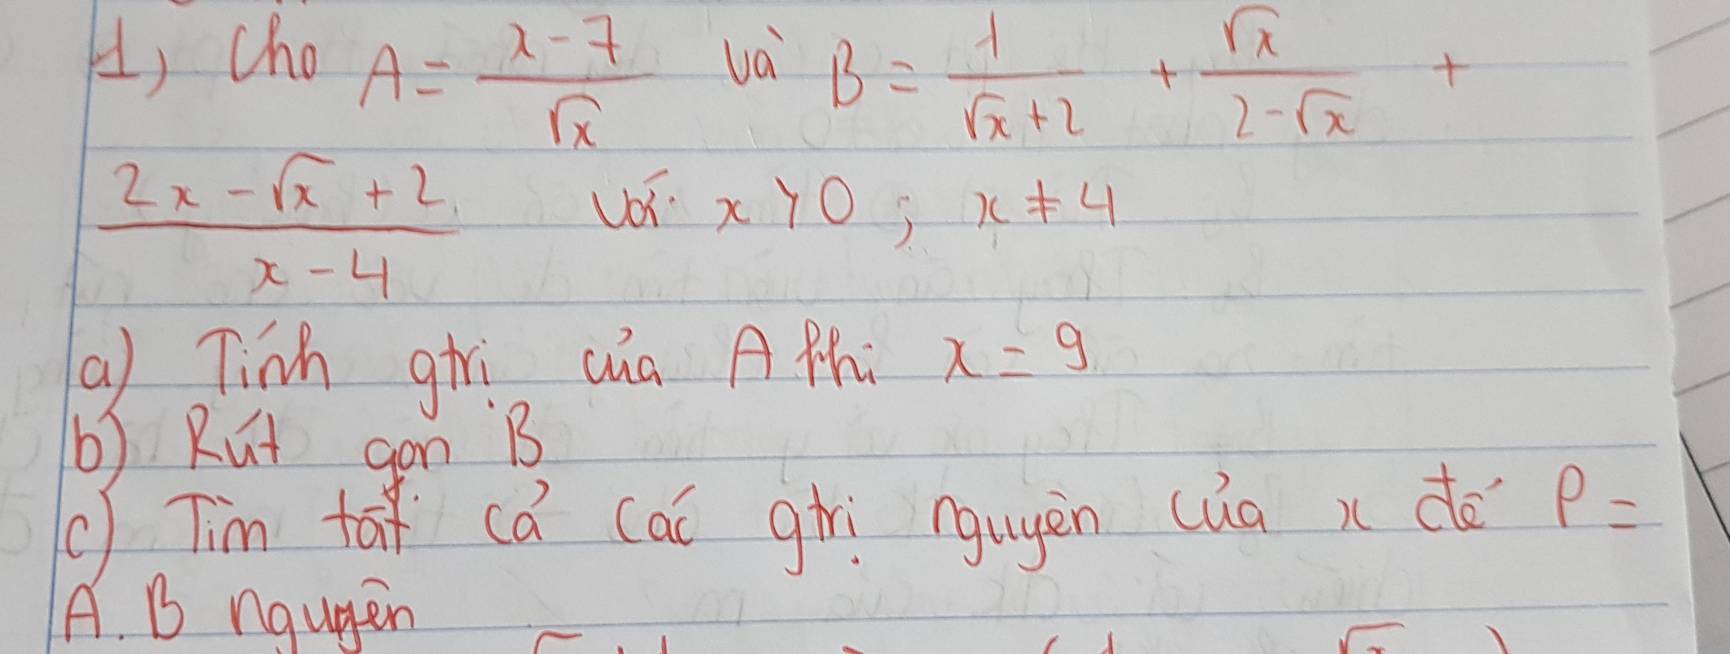 1) Cho A = \frac{x-7}{\sqrt{x}} và B = \frac{1}{\sqrt{x}+2} + \frac{\sqrt{x}}{2-\sqrt{x}} +
\frac{2x-\sqrt{x}+2}{x-4} với x > 0 ; x ≠ 4
a) Tính gtrị của A khi x = 9
b) Rút gọn B
c) Tìm tất cả các gtrị nguyên của x để P =
A.B nguyên